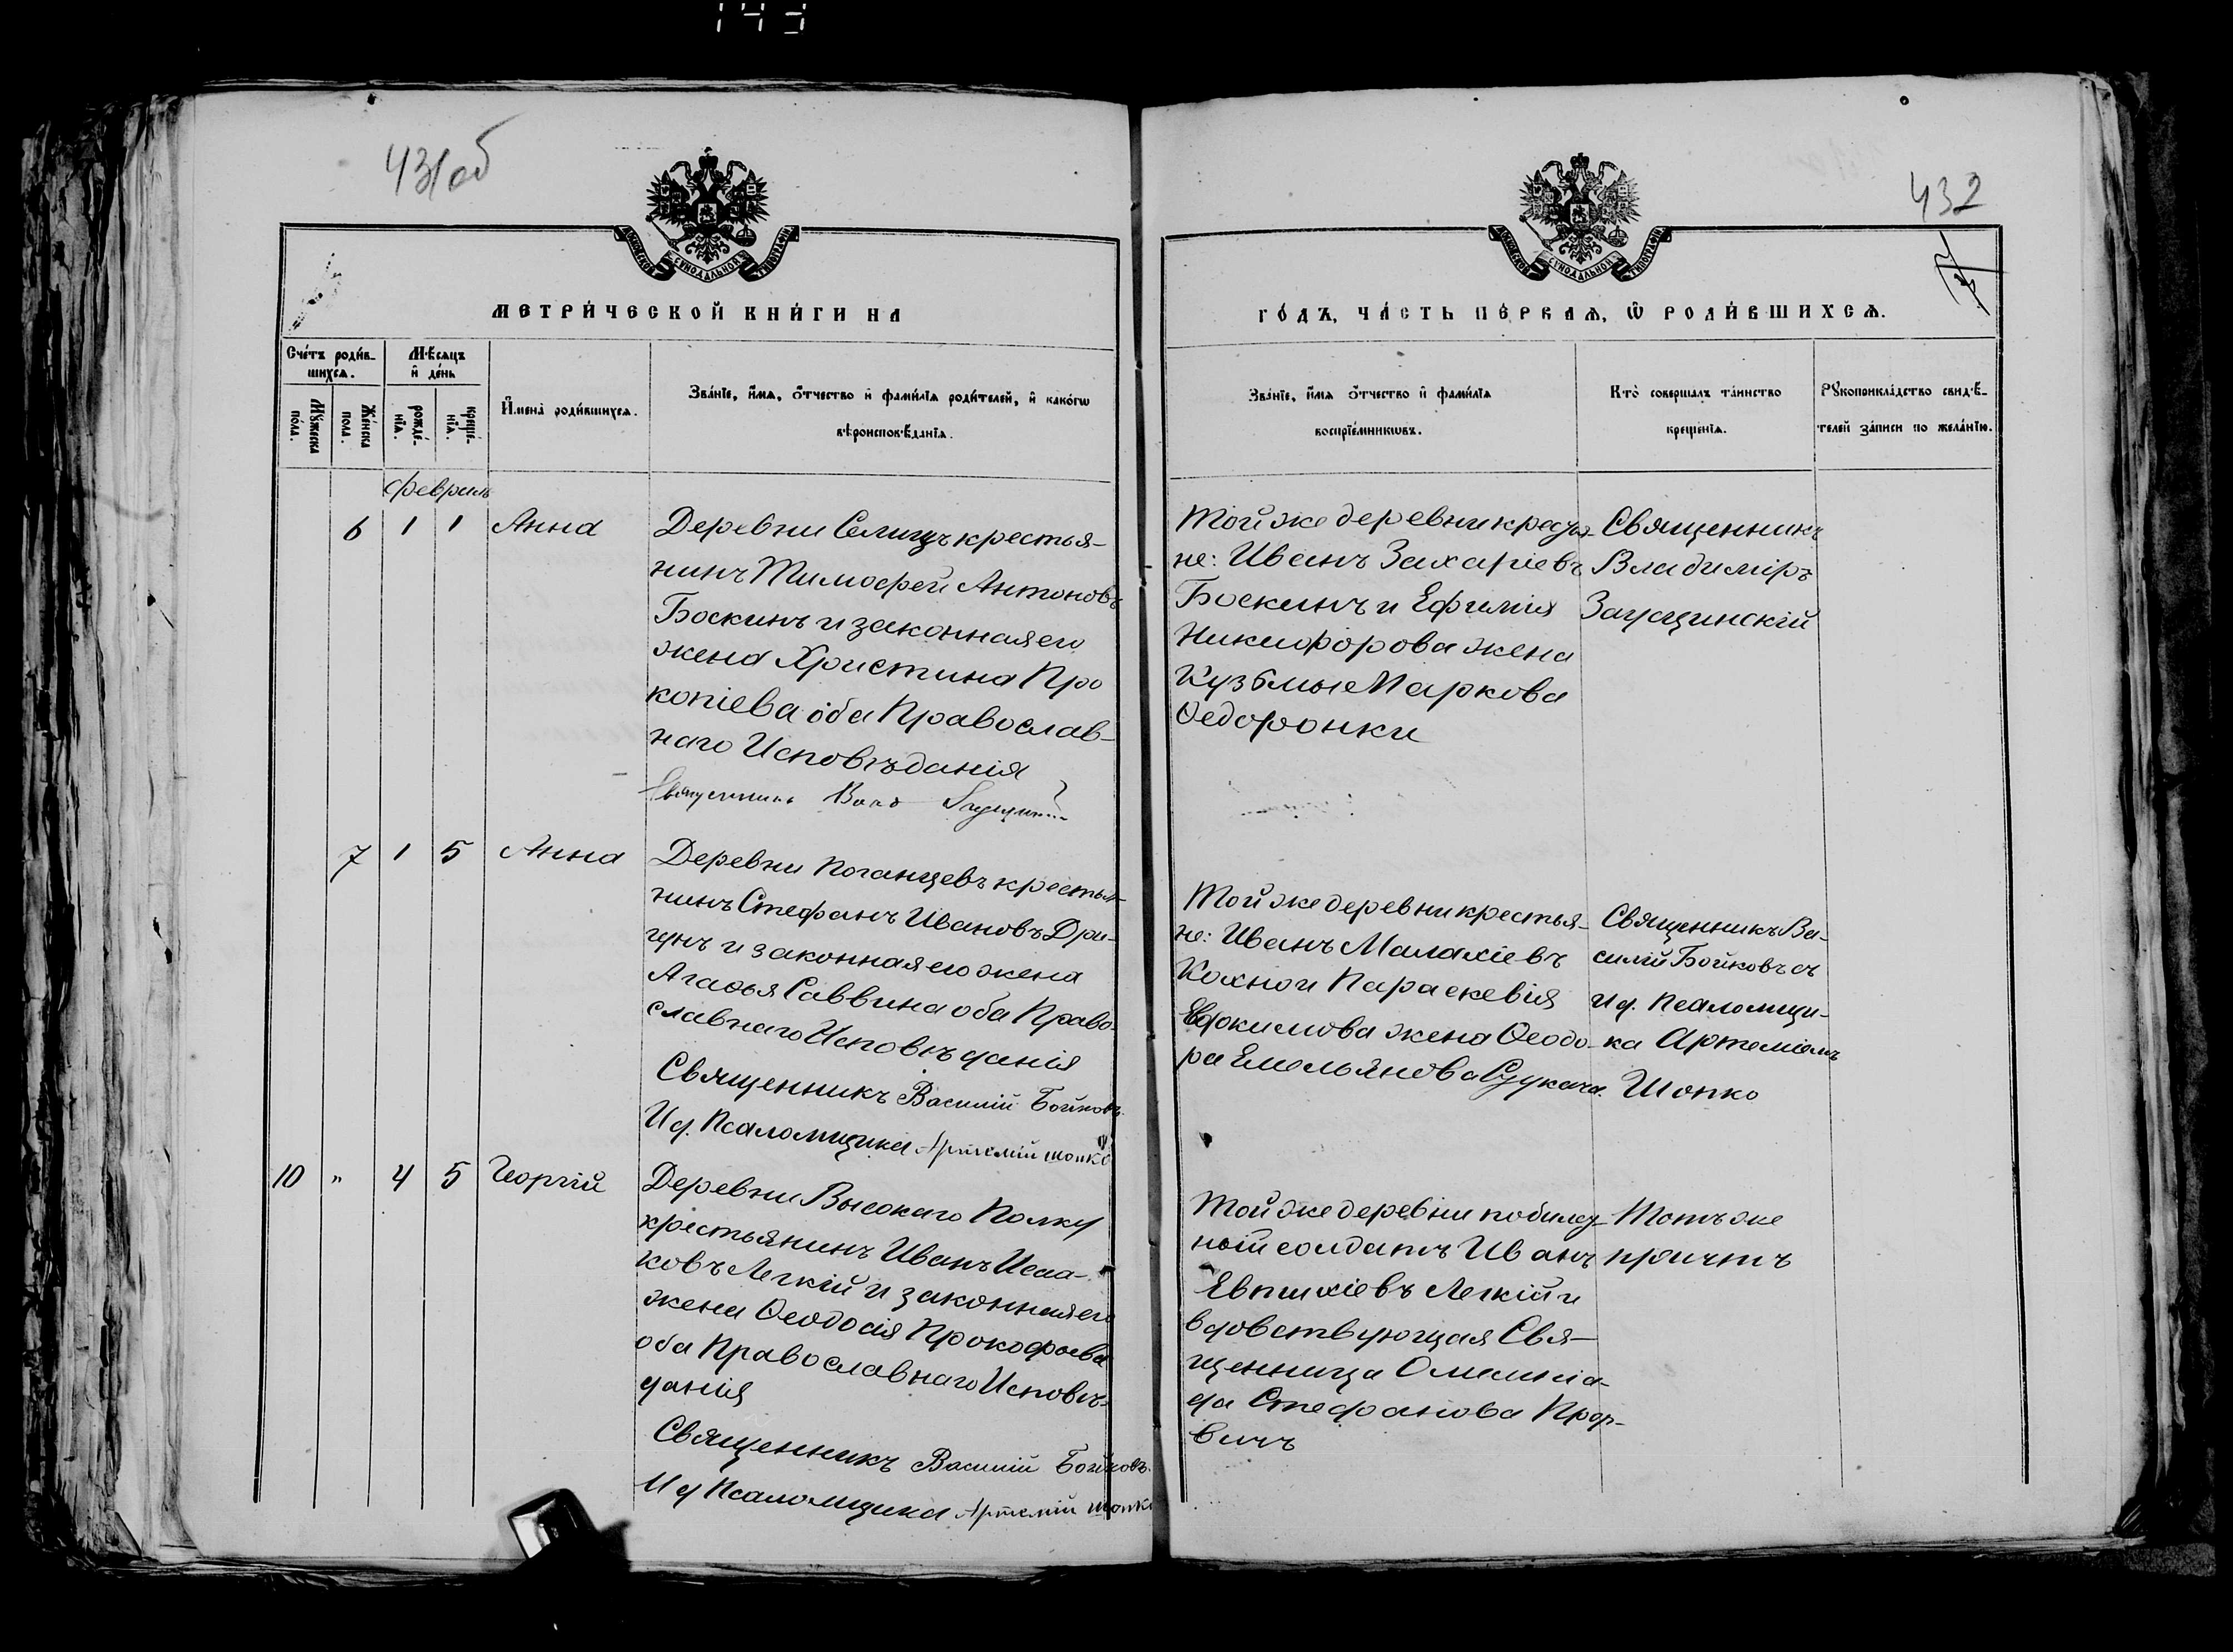 143
431об
432
МЕТРИ́ЧЕСКОЙ КНИ́ГИ НА
ГО́ДЪ, ЧА́СТЬ ПЕ́РВАѦ, Ѡ РОДИ́ВШИХСѦ.
Сче́тъ роди́в-
шихсѧ.
Мѣ́сѧцъ
и де́нь
Мꙋ́жеска
по́ла.
Же́нска
пола.
рожде́-
нїѧ.
креще́-
нїѧ.
И҆мена̀ роди́вшихсѧ.
Зва́нїе, и҆́мѧ, ѻ҆́тчество и҆ фами́лїѧ роди́телей, и҆ како́гѡ
вѣроисповѣ́данїѧ.
Зва́нїе, и҆́мѧ ѻ҆́тчество и҆ фами́лїѧ
воспрїе́мникѡвъ.
Кто̀ соверша́лъ та́инство
креще́нїѧ.
Рꙋкоприкла́дство свидѣ́-
телей за́писи по жела́нїю.
Февраль
6 1 1 Анна
Деревни Селищъ крестья-
нинъ Тимофей Антоновъ
Боскинъ и законная его
жена Христина Про
копіева оба Православ-
наго Исповѣданія
Священникъ
Той же деревни крестья-
не: Иванъ Захаріевъ
Боскинъ и Ефимія
Никифорова жена
Кузьмы Маркова
Ѳедоронки
Священникъ
Владиміръ
Заущинскій
7 1 5 Анна
Деревни Поганцевъ крестья-
нинъ Стефанъ Ивановъ Дри-
гунъ и законная его жена
Агаѳья Саввина оба Право-
славнаго Исповѣданія
Священникъ Василій Бойковъ
И д. Псаломщика Артемій Шопко
Той же деревни крестья-
не: Иванъ Малахіевъ
Кохно и Параскевія
Евфимова жена Ѳеодо-
ра Емельянова
Священникъ Ва-
силій Бойковъ съ
И д. Псаломщи-
ка Артеміемъ
Шопко
10 " 4 5 Георгій
Деревни Высокаго Полку
крестьянинъ Иванъ Исаа-
ковъ Легкій и законная его
жена Ѳеодосія Прокофьева
оба Православнаго Исповѣ-
данія
Священникъ Василій Бойковъ
И д Псаломщика Артемій Шопко
Той же деревни
солдатъ Иванъ
Евтихіевъ Легкій и
вдовствующая Свя-
щенница Олимпіа-
да Стефанова
Тотъ же
причтъ